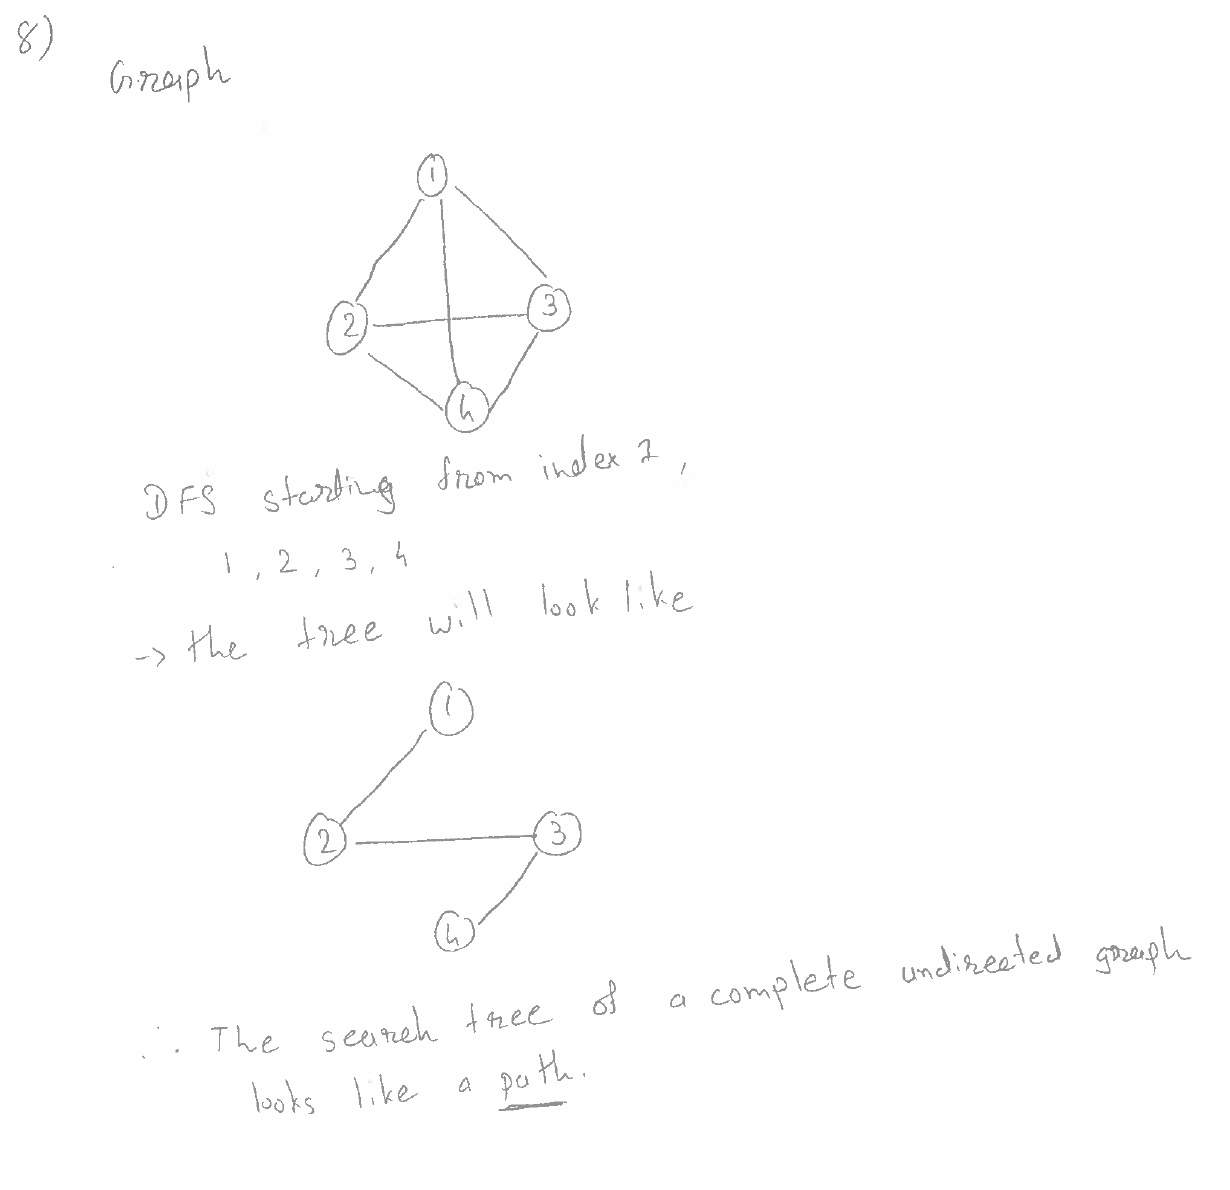 8)
Graph
1
2
3
4
DFS starting from index 1,
1, 2, 3, 4
-> the tree will look like
1
2
3
4
∴ The search tree of a complete undirected graph
looks like a path.